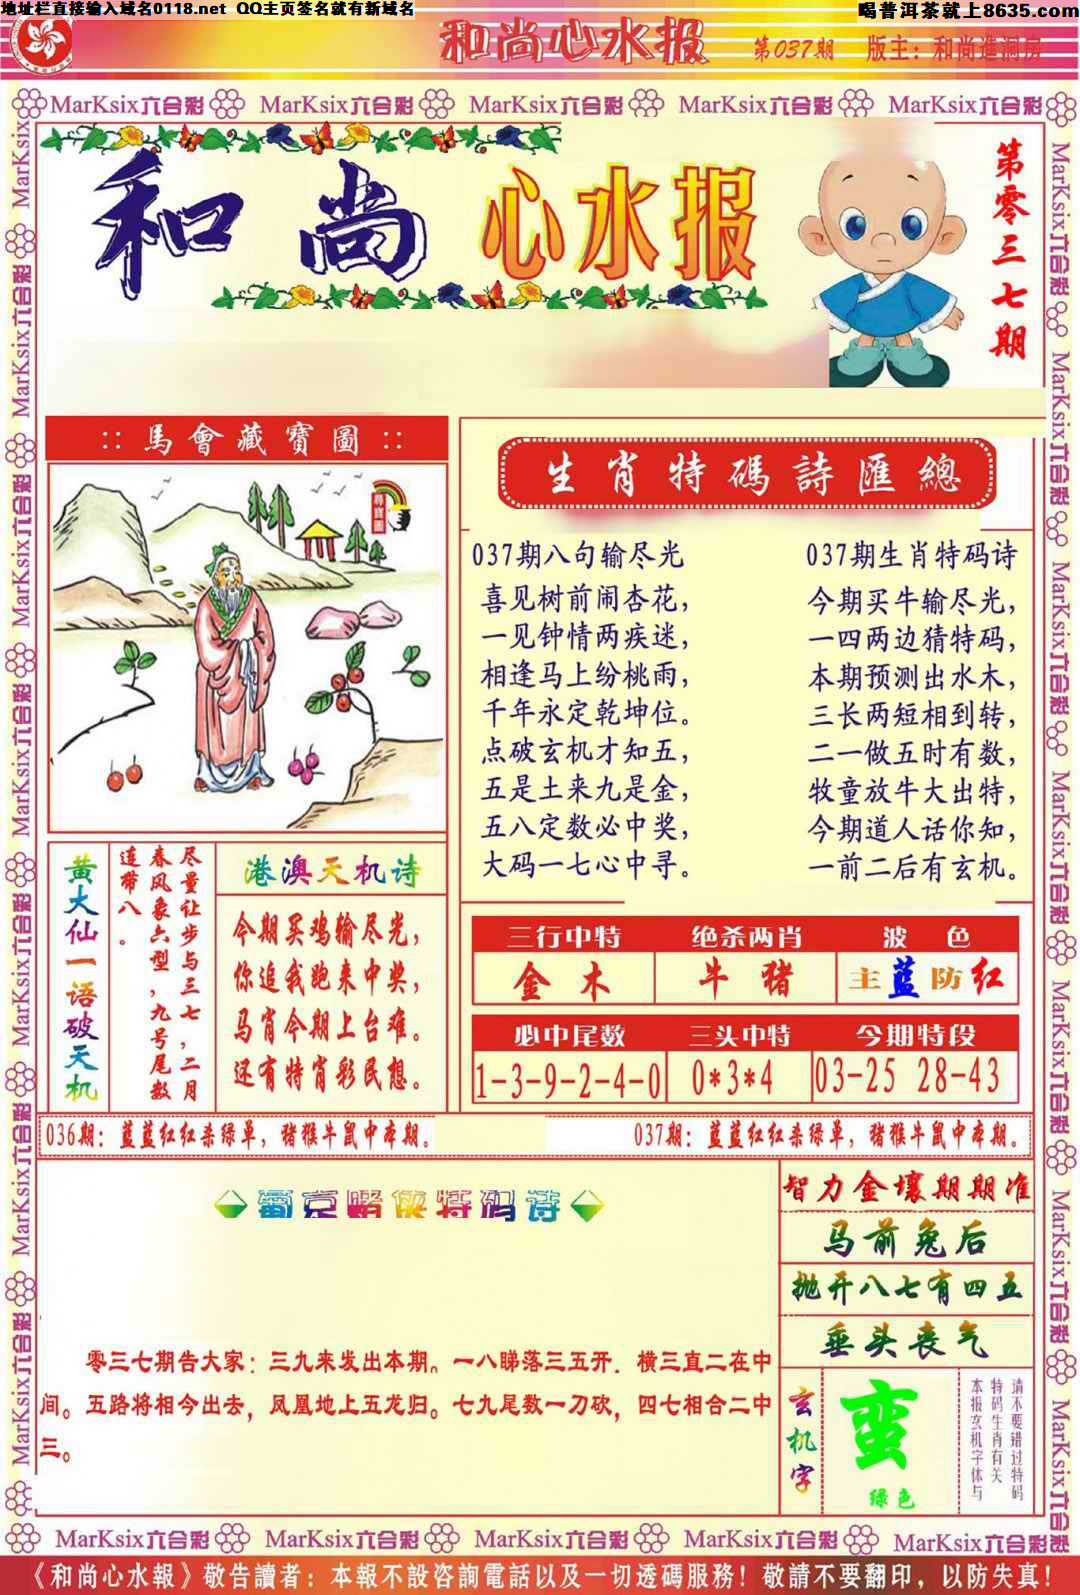 地址栏直接输入域名0118.net QQ主页签名就有新域名
喝普洱茶就上8635.com
和尚心水报
第037期
版主：和尚進洞房
MarKsix六合彩 MarKsix六合彩 MarKsix六合彩 MarKsix六合彩 MarKsix六合彩
和尚心水报
第零三七期
:: 馬會藏寶圖 ::
尋寶圖
生肖特碼詩匯總
037期八句输尽光
喜见树前闹杏花，
一见钟情两疾迷，
相逢马上纷桃雨，
千年永定乾坤位。
点破玄机才知五，
五是土来九是金，
五八定数必中奖，
大码一七心中寻。
037期生肖特码诗
今期买牛输尽光，
一四两边猜特码，
本期预测出水木，
三长两短相到转，
二一做五时有数，
牧童放牛大出特，
今期道人话你知，
一前二后有玄机。
黄大仙一语破天机
尽量让步与三七，二月
春风象六型，九号尾数
连带八。
港澳天机诗
今期买鸡输尽光，
你追我跑来中奖，
马肖今期上台难。
还有特肖彩民想。
三行中特 绝杀两肖 波色
金木 牛猪 主蓝防红
必中尾数 三头中特 今期特段
1-3-9-2-4-0 0*3*4 03-25 28-43
036期：蓝蓝红红杀绿单，猪猴牛鼠中本期。
037期：蓝蓝红红杀绿单，猪猴牛鼠中本期。
特码诗
零三七期告大家：三九来发出本期。一八睇落三五开．横三直二在中
间。五路将相今出去，凤凰地上五龙归。七九尾数一刀砍，四七相合二中
三。
智力金壤期期准
马前兔后
抛开八七有四五
垂头丧气
玄机字
蛮
绿色
请不要错过特码
特码生肖有关
本报玄机字体与
MarKsix六合彩 MarKsix六合彩 MarKsix六合彩 MarKsix六合彩 MarKsix六合彩
《和尚心水報》敬告讀者：本報不設咨詢電話以及一切透碼服務！敬請不要翻印，以防失真！